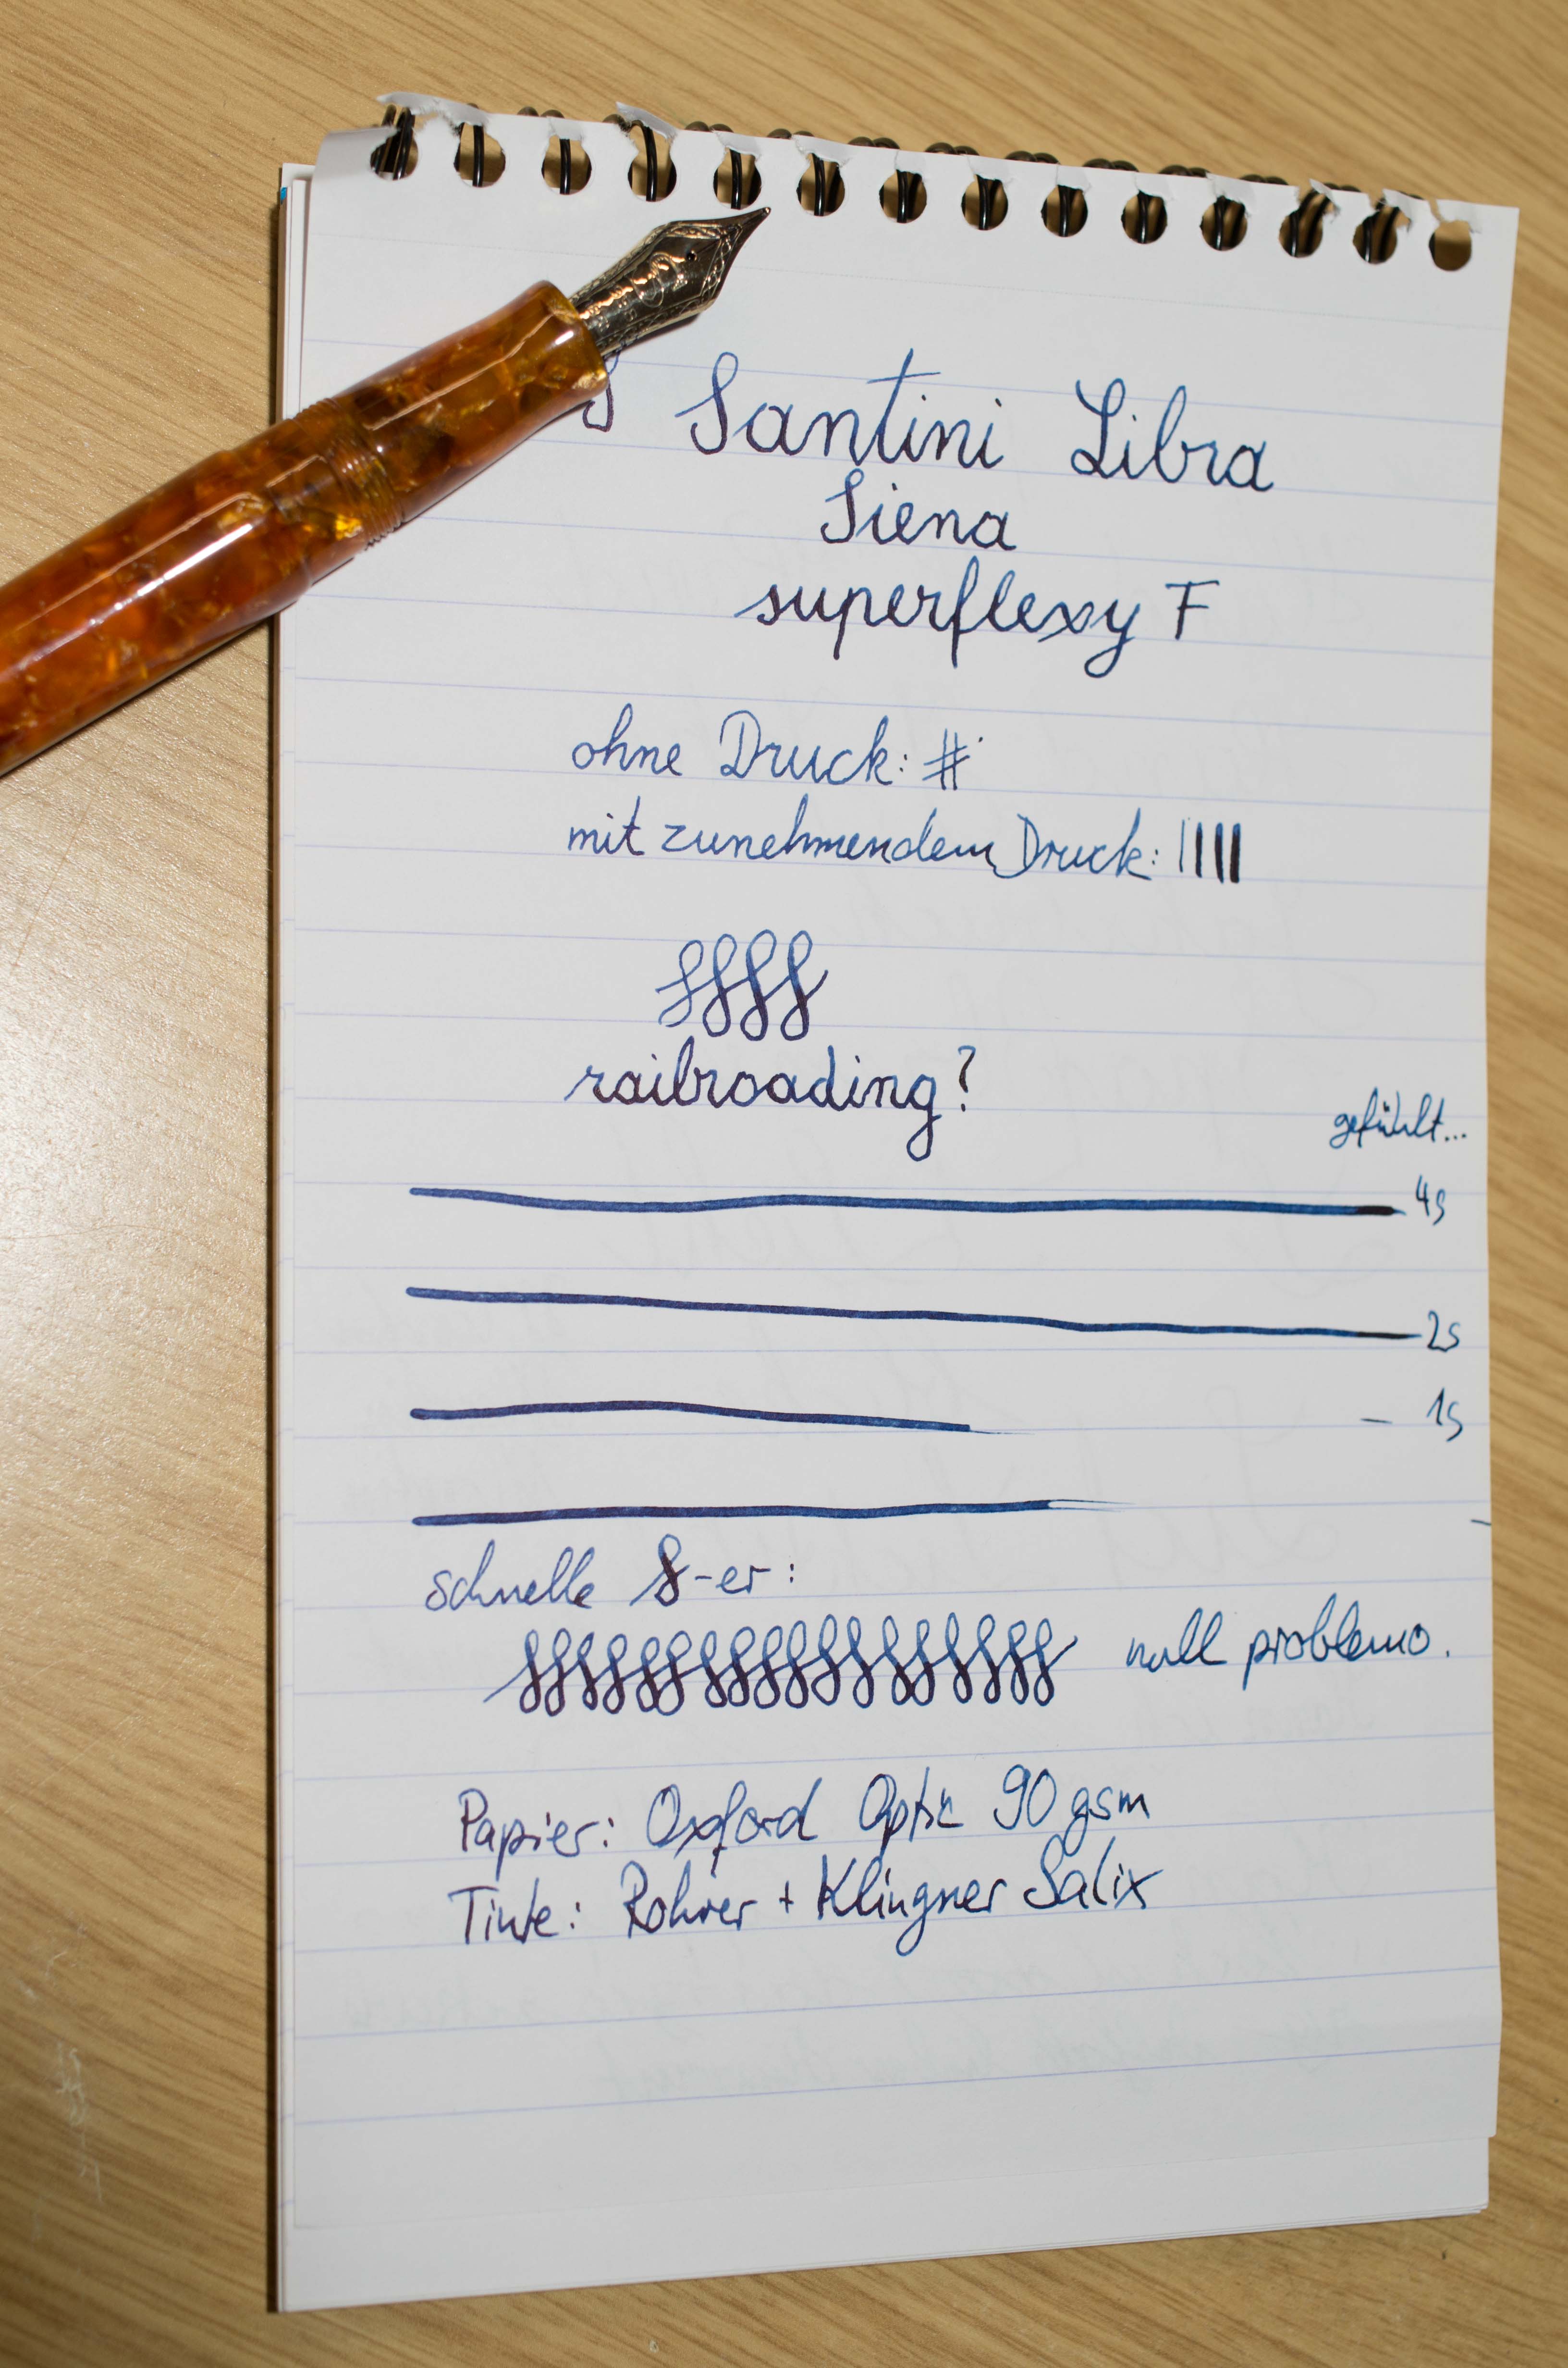 Santini Libra
Siena
superflexy F
ohne Druck: #
mit zunehmendem Druck: |||||
ssss
railroading?
gefühlt...
4s
2s
1s
schnelle S-er:
ssssssssssssssssssss null problemo.
Papier: Oxford Optic 90 gsm
Tinte: Rohrer + Klingner Salix